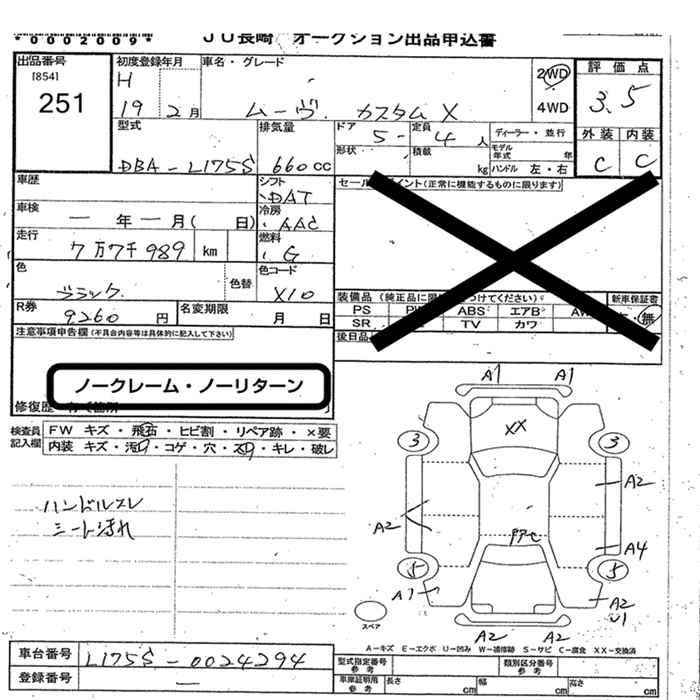 *0002009*
JU長崎 オークション出品申込書
出品番号
[854]
251
初度登録年月
H
19 2月
車名・グレード
ムーヴ カスタム X
2WD
4WD
評価点
3.5
外装 内装
C C
型式
DBA-L175S
排気量
660cc
ドア
5
定員
4人
形状
積載
kg
ディーラー・並行
モデル年式 年
ハンドル 左・右
車歴
シフト
DAT
車検
— 年 — 月( 日)
冷房
AAC
走行
7万7千989 km
燃料
G
色
ブラック
色替
色コード
X10
R券
9260円
名変期限
月 日
セールスポイント(正常に機能するものに限ります)
装備品
新車保証書
・無
PS ABS エアB
SR TV カワ
後日品
注意事項申告欄(不具合内容等は具体的に記入して下さい)
ノークレーム・ノーリターン
修復歴
検査員記入欄
FW キズ・飛石・ヒビ割・リペア跡・×要
内装 キズ・汚れ・コゲ・穴・スレ・キレ・破レ
ハンドルスレ
シート汚れ
A1 A1
XX
3 3
A2
A2
A4
5 5
A1
A2
U1
A2 A2
スペア
A-キズ E-エクボ U-凹み W-補修跡 S-サビ C-腐食 XX-交換済
車台番号
L175S-0024294
登録番号
—
型式指定番号
参考
類別区分番号
参考
車庫証明用
参考
長さ cm
幅 cm
高さ cm